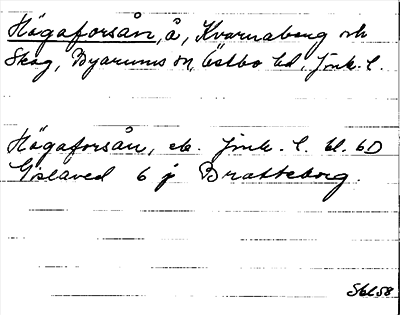 Högaforsån, å, Kvarnaberg och
Skog, Byarums sn, Östbo hd, Jönk. l.
Högaforsån, ek. Jönk. l. bl. 6D
Gislaved 6 j Bratteborg.
SOL58